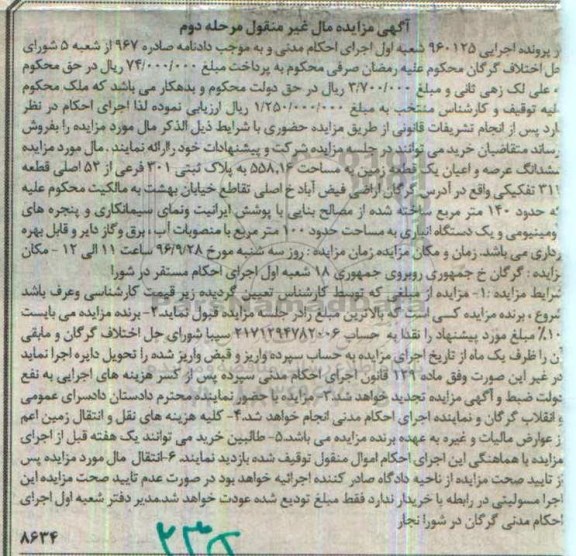 آگهی مزایده مال غیر منقول مرحله دوم
در پرونده اجرایی ۹۶۰۱۲۵ شعبه اول اجرای احکام مدنی و به موجب دادنامه صادره ۹۶۷ از شعبه ۵ شورای
حل اختلاف گرگان محکوم علیه رمضان صرفی محکوم به پرداخت مبلغ ۷۴/۰۰۰/۰۰۰ ریال در حق محکوم
له علی لک زهی ثانی و مبلغ ۳/۷۰۰/۰۰۰ ریال در حق دولت محکوم و بدهکار می باشد که ملک محکوم
علیه توقیف و کارشناس منتخب به مبلغ ۱/۲۵۰/۰۰۰/۰۰۰ ریال ارزیابی نموده لذا اجرای احکام در نظر
دارد پس از انجام تشریفات قانونی از طریق مزایده حضوری با شرایط ذیل الذکر مال مورد مزایده را بفروش
برساند متقاضیان خرید می توانند در جلسه مزایده شرکت و پیشنهادات خود را ارائه نمایند. مال مورد مزایده
ششدانگ عرصه و اعیان یک قطعه زمین به مساحت ۵۵۸,۱۶ به پلاک ثبتی ۳۰۱ فرعی از ۵۲ اصلی قطعه
۳۱۱ تفکیکی واقع در آدرس گرگان اراضی فیض آباد خ اصلی تقاطع خیابان بهشت به مالکیت محکوم علیه
که حدود ۱۴۰ متر مربع ساخته شده از مصالح بنایی با پوشش ایرانیت ونمای سیمانکاری و پنجره های
آلومینیومی و یک دستگاه انباری به مساحت حدود ۱۰۰ متر مربع با منصوبات آب ، برق و گاز دایر و قابل بهره
برداری می باشد. زمان و مکان مزایده زمان مزایده : روز سه شنبه مورخ ۹۶/۹/۲۸ ساعت ۱۱ الی ۱۲ - مکان
مزایده : گرگان خ جمهوری روبروی جمهوری ۱۸ شعبه اول اجرای احکام مستقر در شورا
شرایط مزایده :۱- مزایده از مبلغی که توسط کارشناس تعیین گردیده زیر قیمت کارشناسی وعرف باشد
شروع ، برنده مزایده کسی است که بالاترین مبلغ رادر جلسه مزایده قبول نماید۲- برنده مزایده می بایست
۱۰٪ مبلغ مورد پیشنهاد را نقدا به حساب ۲۱۷۱۲۹۴۷۸۲۰۰۶ سیبا شورای حل اختلاف گرگان و مابقی
آن را ظرف یک ماه از تاریخ اجرای مزایده به حساب سپرده واریز و قبض واریز شده را تحویل دایره اجرا نماید
در غیر این صورت وفق ماده ۱۲۹ قانون اجرای احکام مدنی سپرده پس از کسر هزینه های اجرایی به نفع
دولت ضبط و آگهی مزایده تجدید خواهد شد.۳- مزایده با حضور نماینده محترم دادستان دادسرای عمومی
و انقلاب گرگان و نماینده اجرای احکام مدنی انجام خواهد شد.۴- کلیه هزینه های نقل و انتقال زمین اعم
از عوارض مالیات و غیره به عهده برنده مزایده می باشد.۵- طالبین خرید می توانند یک هفته قبل از اجرای
مزایده با هماهنگی این اجرای احکام اموال منقول توقیف شده بازدید نمایند. ۶-انتقال مال مورد مزایده پس
از تایید صحت مزایده از ناحیه دادگاه صادر کننده اجرائیه خواهد بود در صورت عدم تایید صحت مزایده این
اجرا مسولیتی در رابطه با خریدار ندارد فقط مبلغ تودیع شده عودت خواهد شد.مدیر دفتر شعبه اول اجرای
احکام مدنی گرگان در شورا نجار
۸۶۳۴